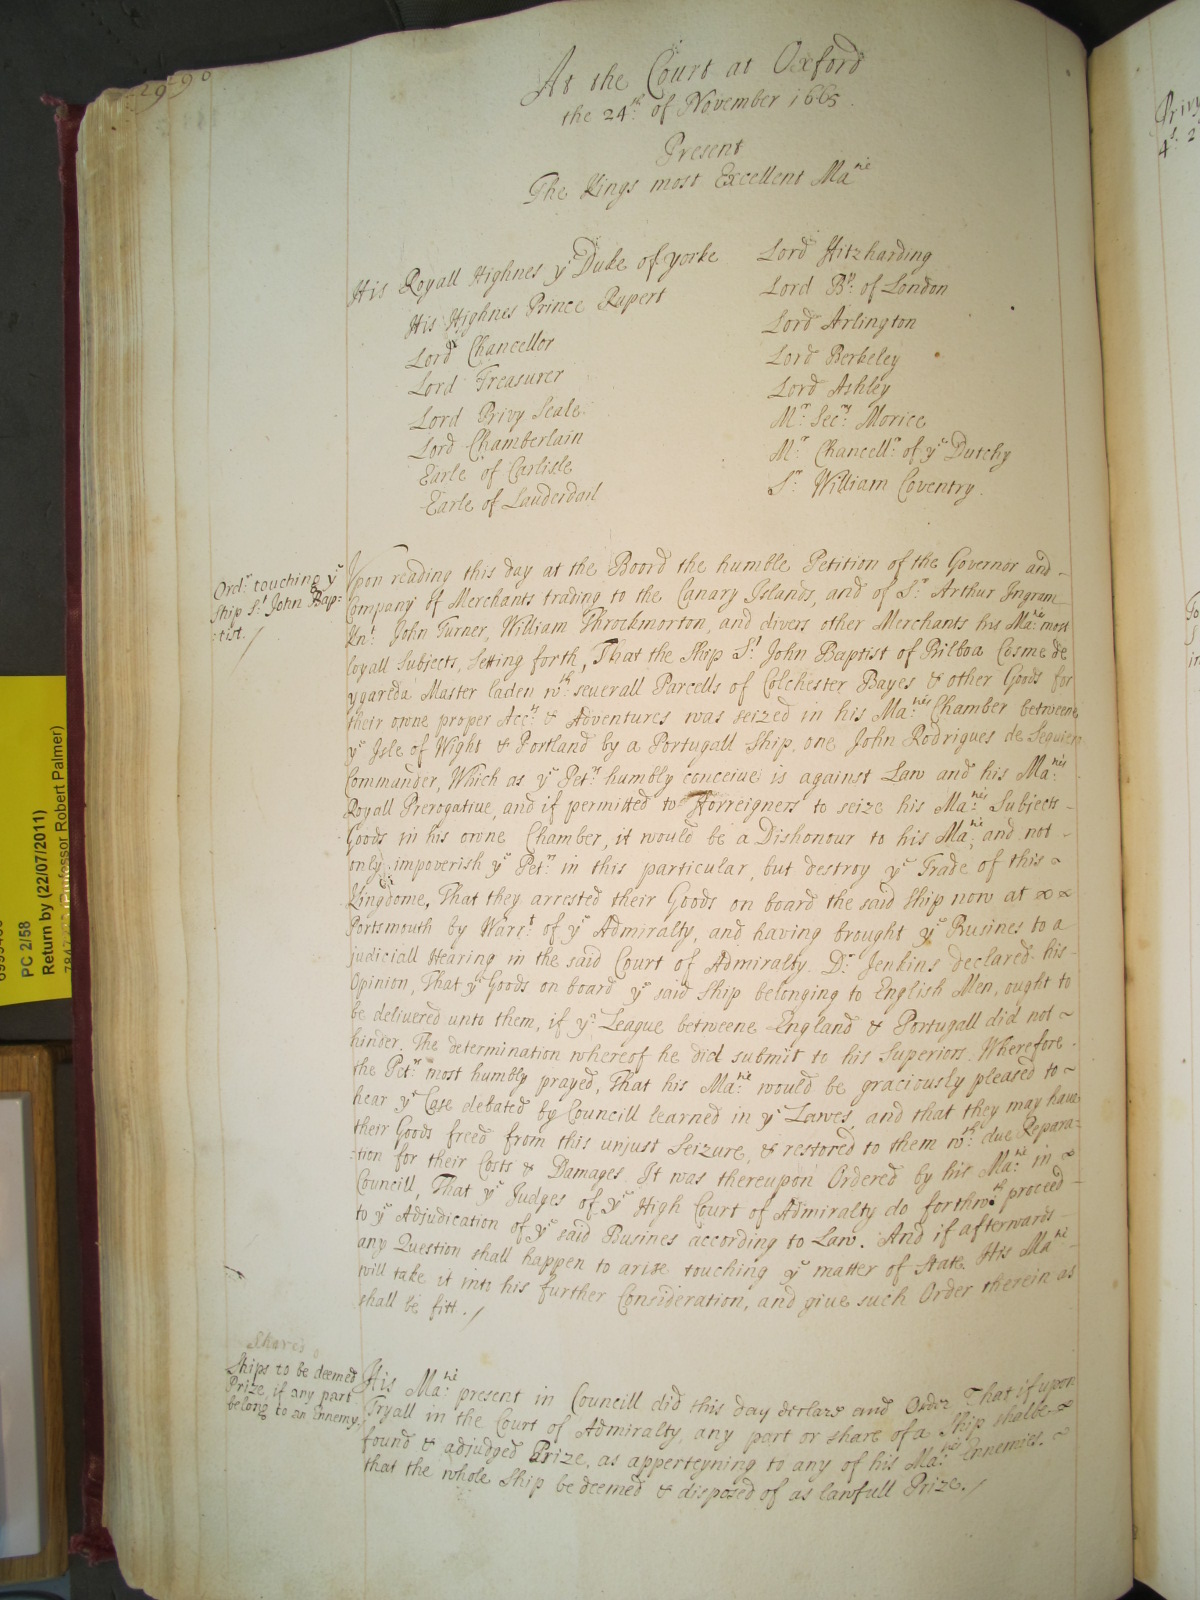 290
At the Court at Oxford
the 24th of November 1665.
Present
The Kings most Excellent Matie
His Royall Highnes ye Duke of Yorke
His Highnes Prince Rupert
Lord Chancellor
Lord Treasurer
Lord Privy Seale
Lord Chamberlain
Earle of Carlisle
Earle of Lauderdail
Lord Fitzharding
Lord Bp: of London
Lord Arlington
Lord Berkeley
Lord Ashley
Mr: Secry: Morice
Mr: Chancellr: of ye Dutchy
Sr: William Coventry.
Ordr: touching ye
Ship St John Bap:
:tist./
Upon reading this day at the Boord the humble Petition of the Governor and
Company of Merchants trading to the Canary Islands, and of Sr: Arthur Ingram
Knt: John Turner, William Throckmorton, and divers other Merchants his Ma:ties most
loyall Subjects, Setting forth, That the Ship St John Baptist of Bilboa Cosme de
ygareda Master laden wth: severall Parcells of Colchester Bayes & other Goods for
their owne proper Acct: & Adventures was seized in his Ma:ties Chamber betweene
ye Isle of Wight & Portland by a Portugall Ship, one John Rodrigues de Sequiera
Commander, Which as ye Petrs humbly conceive is against Law and his Ma:ties
Royall Prerogative, and if permitted to Forreigners to seize his Ma:ties Subjects
Goods in his owne Chamber, it would be a Dishonour to his Ma:tie and not
only impoverish ye Petrs in this particular, but destroy ye Trade of this
Kingdome, That they arrested their Goods on board the said Ship now at
Portsmouth by Warrt: of ye Admiralty, and having brought ye Busines to a
judiciall Hearing in the said Court of Admiralty Dr: Jenkins declared his
Opinion, That ye Goods on board ye said Ship belonging to English Men, ought to
be delivered unto them, if ye League betweene England & Portugall did not
hinder. The determination whereof he did submit to his Superiors. Wherefore
the Petrs most humbly prayed, That his Ma:tie would be graciously pleased to
hear ye Case debated by Councill learned in ye Lawes, and that they may have
their Goods freed from this unjust Seizure, & restored to them wth: due Repara:
:tion for their Costs & Damages It was thereupon Ordered by his Ma:tie in
Councill, That ye Judges of ye High Court of Admiralty do forthwth proceed
to ye Adjudication of ye said Busines according to Law. And if afterwards
any Question shall happen to arise touching ye matter of State His Matie
will take it into his further Consideration, and give such Order therein as
shall be fitt./
Shares
Ships to be deemed
Prize, if any part
belong to an Ennemy/
His Ma:tie present in Councill did this day declare and Order That if upon
Tryall in the Court of Admiralty, any part or share of a Ship shalbe
found & adjudged Prize, as apperteyning to any of his Ma:ties Ennemies.
that the whole Ship be deemed & disposed of as lawfull Prize./
PC 2/58
Return by (22/07/2011)
(Professor Robert Palmer)
Privy
4s: 2